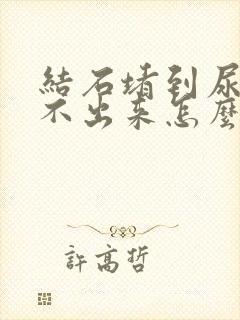 結石堵到尿
不出来怎麼
許高哲